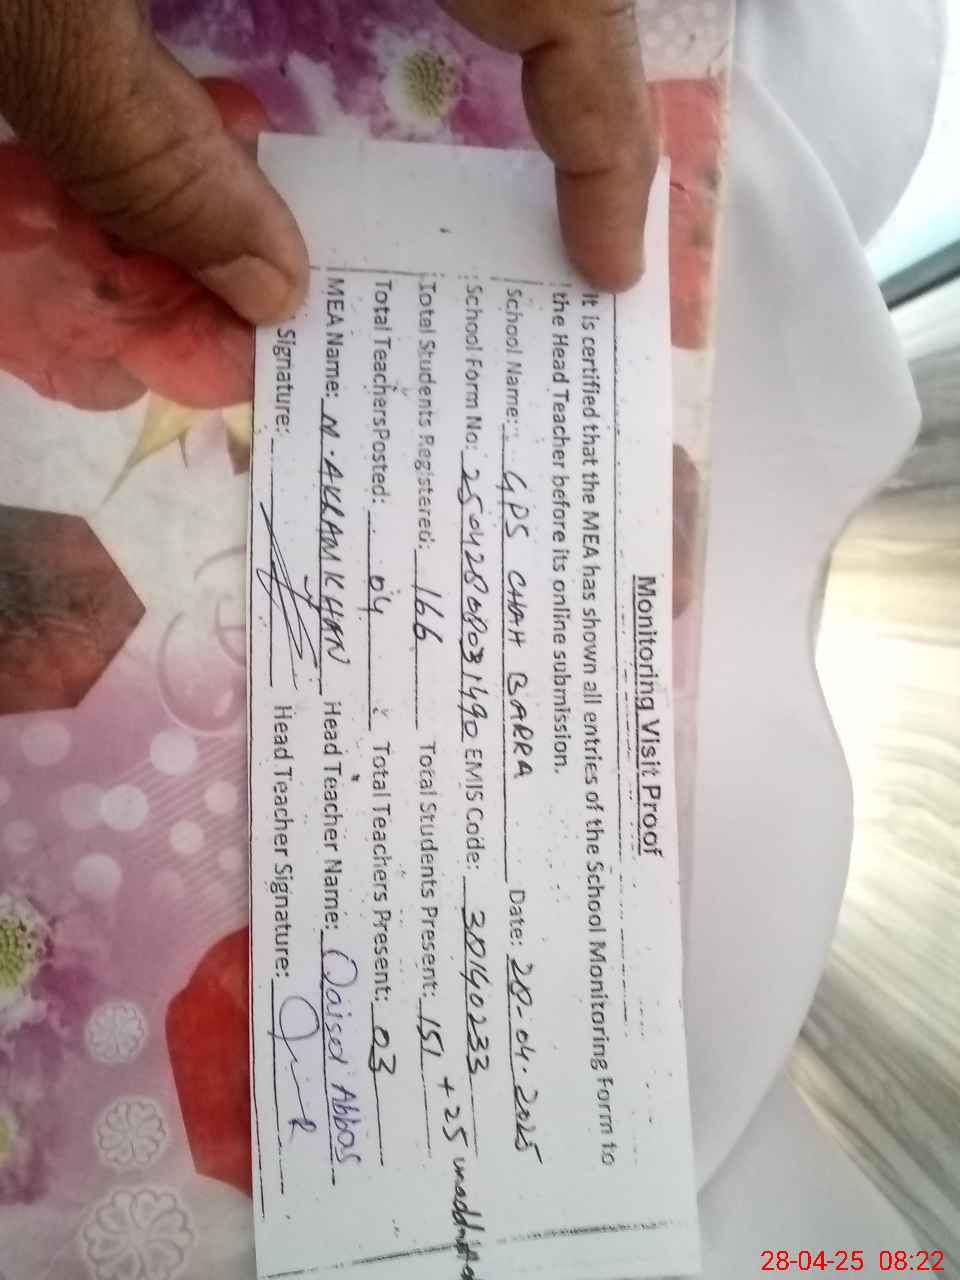 Monitoring Visit Proof
It is certified that the MEA has shown all entries of the School Monitoring Form to
the Head Teacher before its online submission.
School Name: GPS CHAH BARRA Date: 28-04-2025
School Form No: 25042808031490 EMIS Code: 38140233
Total Students Registered: 166 Total Students Present: 151 + 25
Total Teachers Posted: 04 Total Teachers Present: 03
MEA Name: M. AKRAM KHAN Head Teacher Name: Qaisar Abbas
Signature: Head Teacher Signature:
28-04-25 08:22